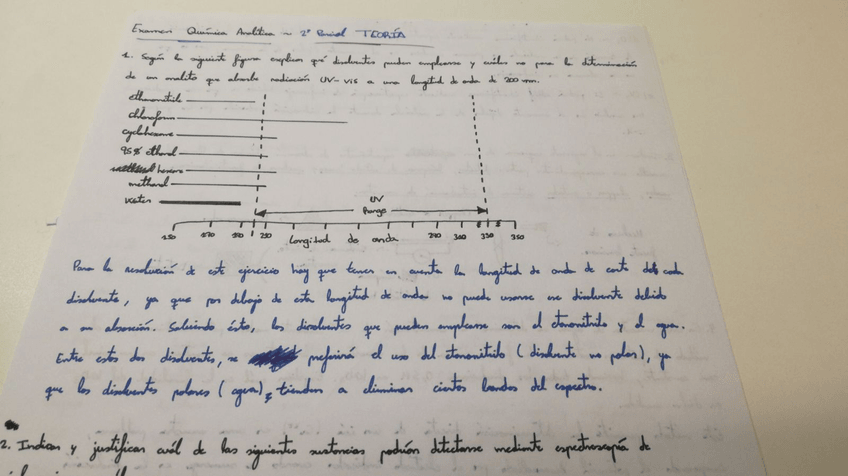 Examen Química Analítica ~ 2º Parcial TEORÍA
1. Según la siguiente figura explicar qué disolventes pueden emplearse y cuáles no para la determinación
de un analito que absorbe radiación UV-vis a una longitud de onda de 200 nm.
ethanonitrile
chloroform
cyclohexane
95% ethanol
hexane
methanol
water
UV
Range
150 170 190 210 Longitud de onda 290 310 330 350
Para la resolución de este ejercicio hay que tener en cuenta la longitud de onda de corte de cada
disolvente, ya que por debajo de esta longitud de onda no puede usarse ese disolvente debido
a su absorción. Sabiendo ésto, los disolventes que pueden emplearse son el etanonitrilo y el agua.
Entre estos dos disolventes, se preferirá el uso del etanonitrilo (disolvente no polar), ya
que los disolventes polares (agua), tienden a eliminar ciertas bandas del espectro.
2. Indicar y justificar cuál de las siguientes sustancias podrían detectarse mediante espectroscopía de